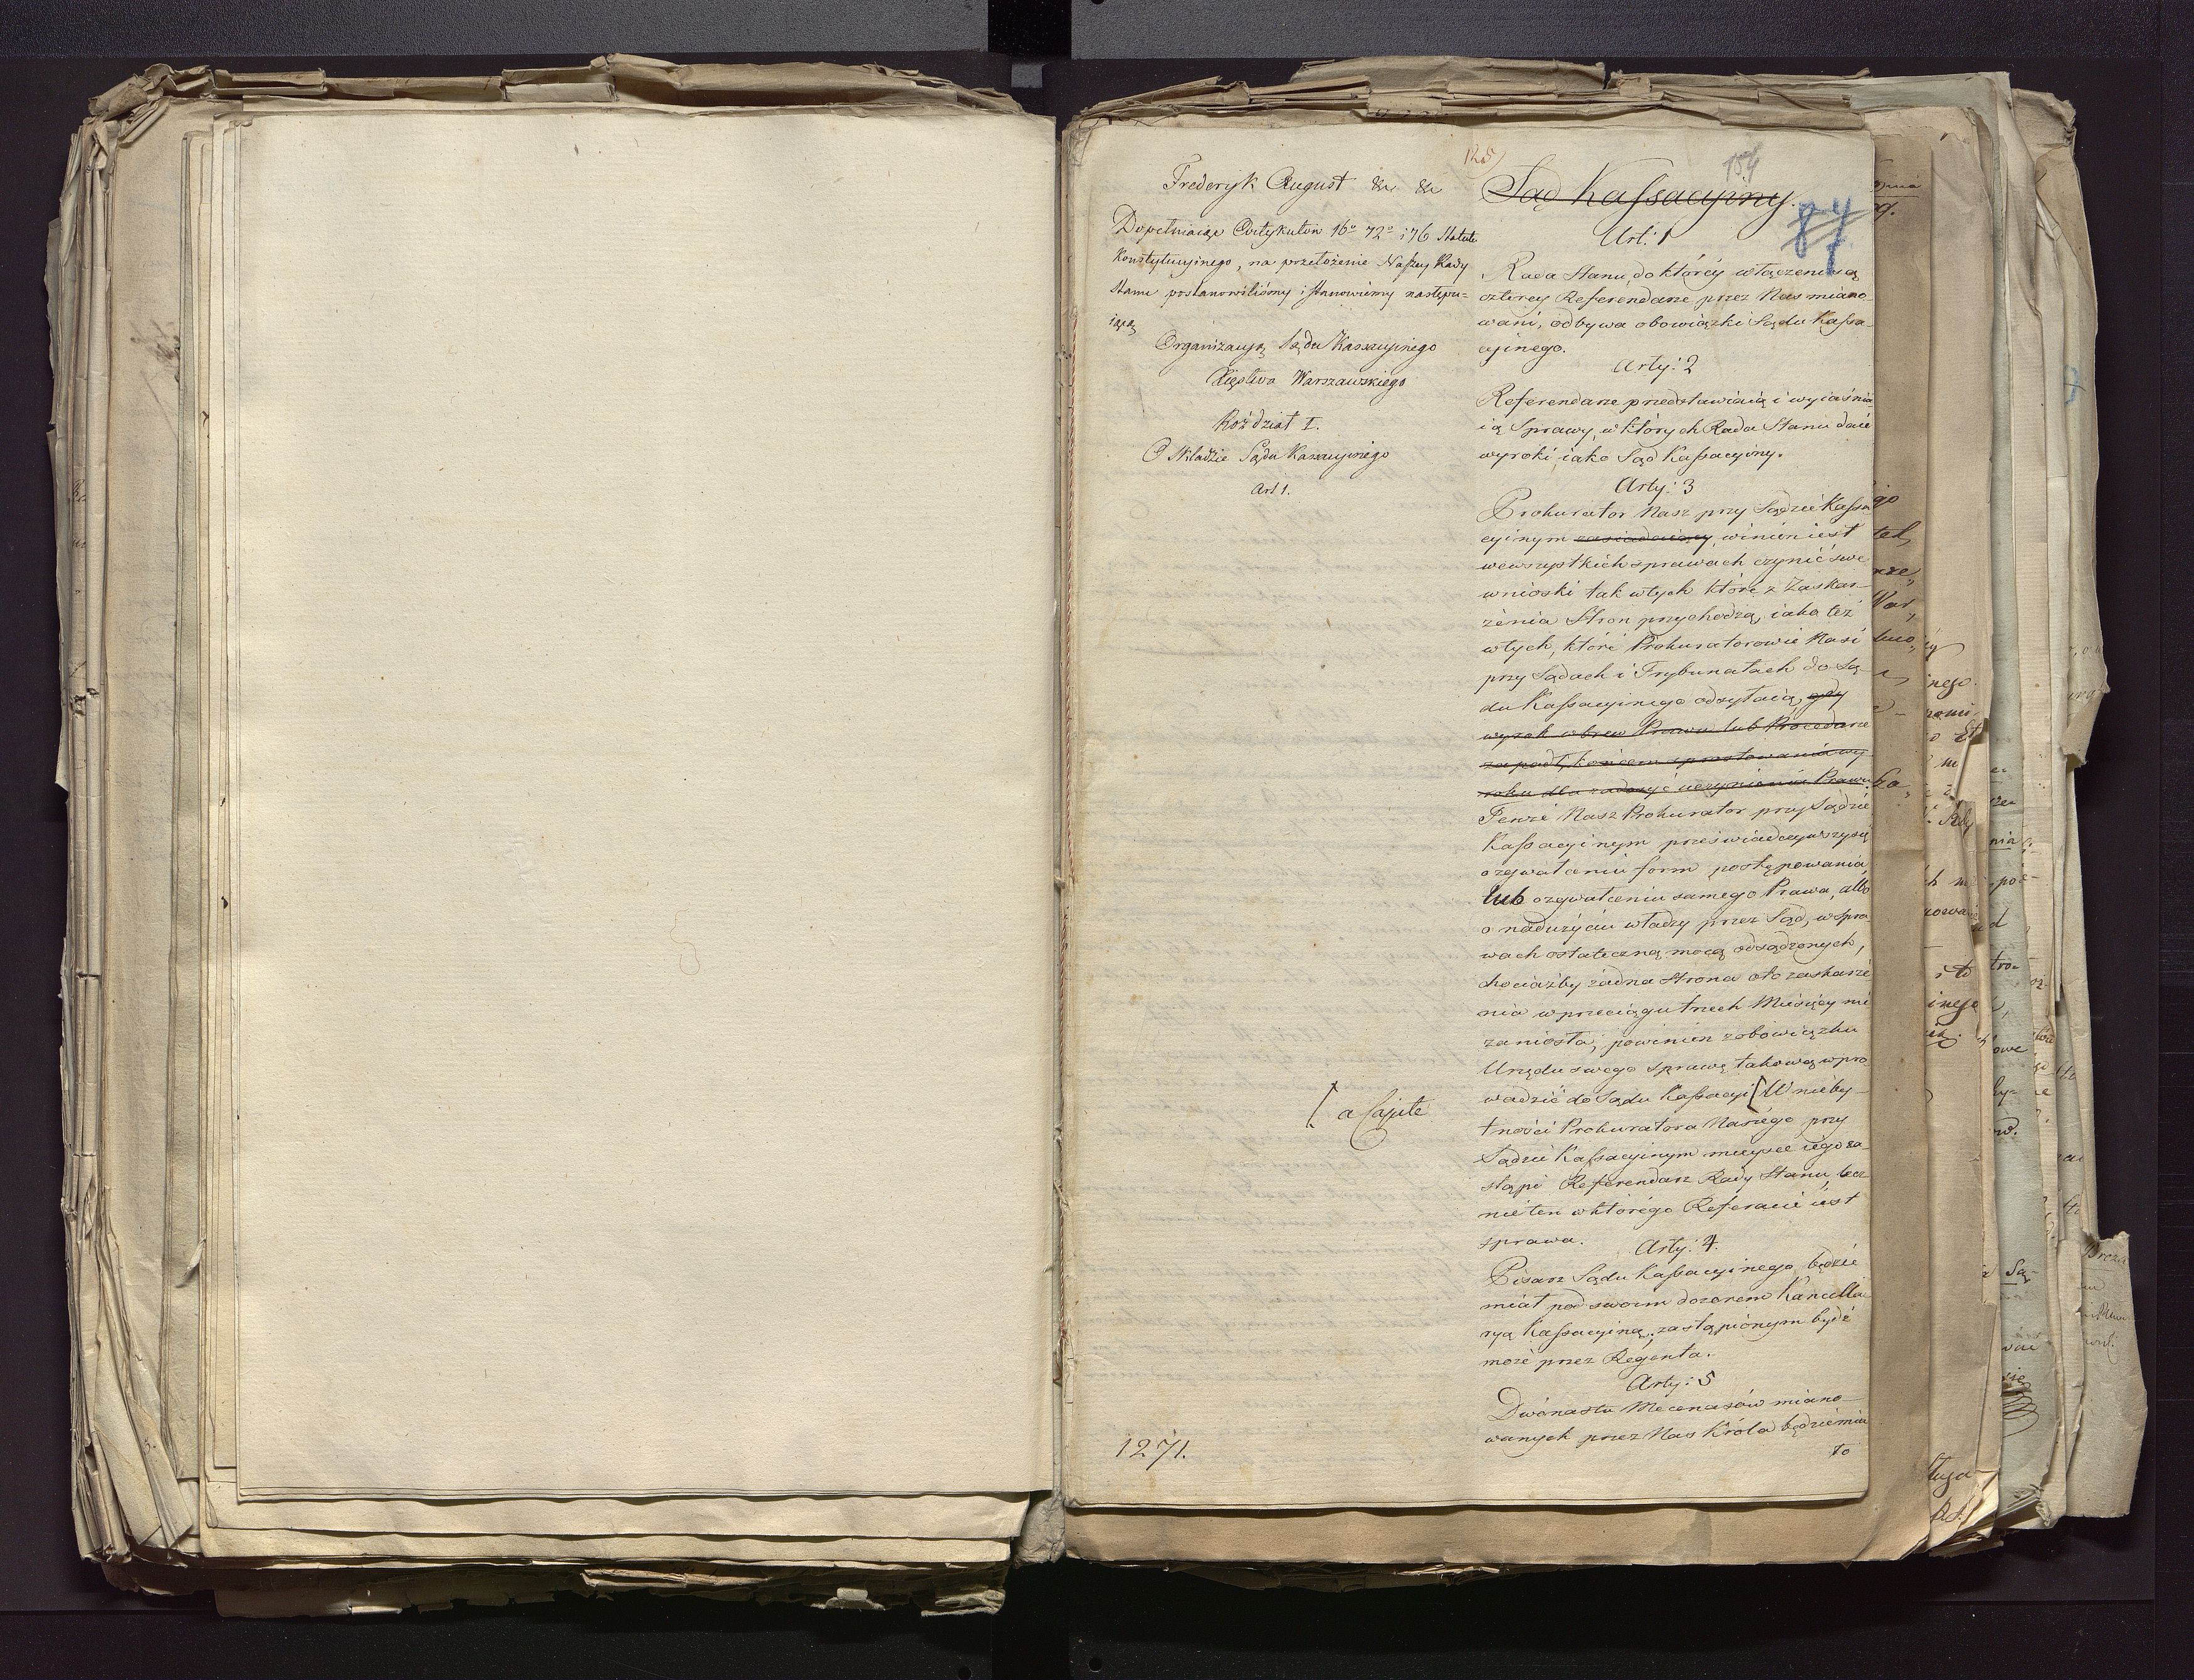 128
154
87
Frederyk August &c &c
Dopełniaiąc Artykułów 16o 72o i 76 Statutu
Konstytucyinego, na przełożenie Naszey Rady
Stanu postanowiliśmy i stanowiemy następu=
iącą
Organizacyą Sądu Kassacyinego
Xięstwa Warszawskiego
Rozdział I.
O Składzie Sądu Kassacyinego
Art 1.
[ a Capite
1271.
Sąd Kassacyiny.
Art: 1
Rada Stanu, do któréy włączeni są
czterey Referendarze przez Nas miano-
wani, odbywa obowiązki Sądu Kassa-
cyinego.
Arty: 2
Referendarze przedstawiaią i wyiaśnia
ią Sprawy, w których Rada Stanu daie
wyroki iako Sąd Kassacyiny.
Arty: 3
Prokurator Nasz przy Sądzie Kassa
cyinym zasiadaiący, winien iest
wewszystkich sprawach czynić swe
wnioski tak w tych które z Zaskar-
żenia Stron przychodzą, iako też
w tych, które Prokuratorowie Nasi
przy Sądach i Trybunałach do Są-
du Kassacyinego odsyłaią, gdy
wyrok wbrew Prawu lub Procedurze
zapadł, końcem sprostowania wy-
roku dla zadosyć uczynienia Prawu.
Tenże Nasz Prokurator przy Sądzie
Kassacyinym przeświadczywszy się
o zgwałceniu form postępowania,
lub o zgwałceniu samego Prawa, albo
o nadużyciu władzy przez Sąd, w spra-
wach ostateczną mocą osądzonych,
chociażby żadna Strona o to zaskarże
nia w przeciągu trzech Miesięcy nie
zaniosła, powinien z obowiązku
Urzędu swego sprawę takową wpro
wadzić do Sądu Kassacyi [W nieby-
tności Prokuratora Naszego przy
Sądzie Kassacyinym mieysce iego za-
stąpi Referendarz Rady Stanu, lecz
nie ten w którego Referacie iest
sprawa.
Arty: 4.
Pisarz Sądu Kassacyinego, będzie
miał pod swoim dozorem Kancella
ryą Kassacyiną; zastąpionym bydź
może przez Regenta.
Arty: 5
Dwónastu Mecenasów miano-
wanych przez Nas Króla będzie mia
ło